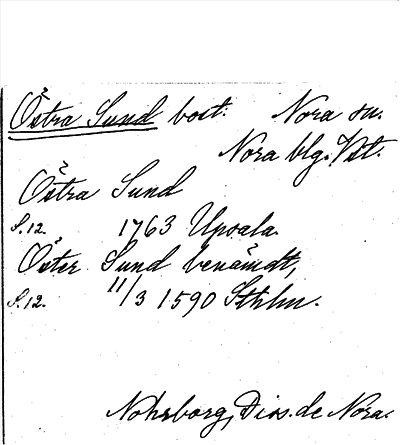 Östra Sund bost. Nora sn.
Nora blg. Vst.
Östra Sund
S. 12. 1763 Upsala
Öster Sund benämdt,
S. 12. 11/3 1590 Sthlm.
Nohrborg, Diss. de Nora.